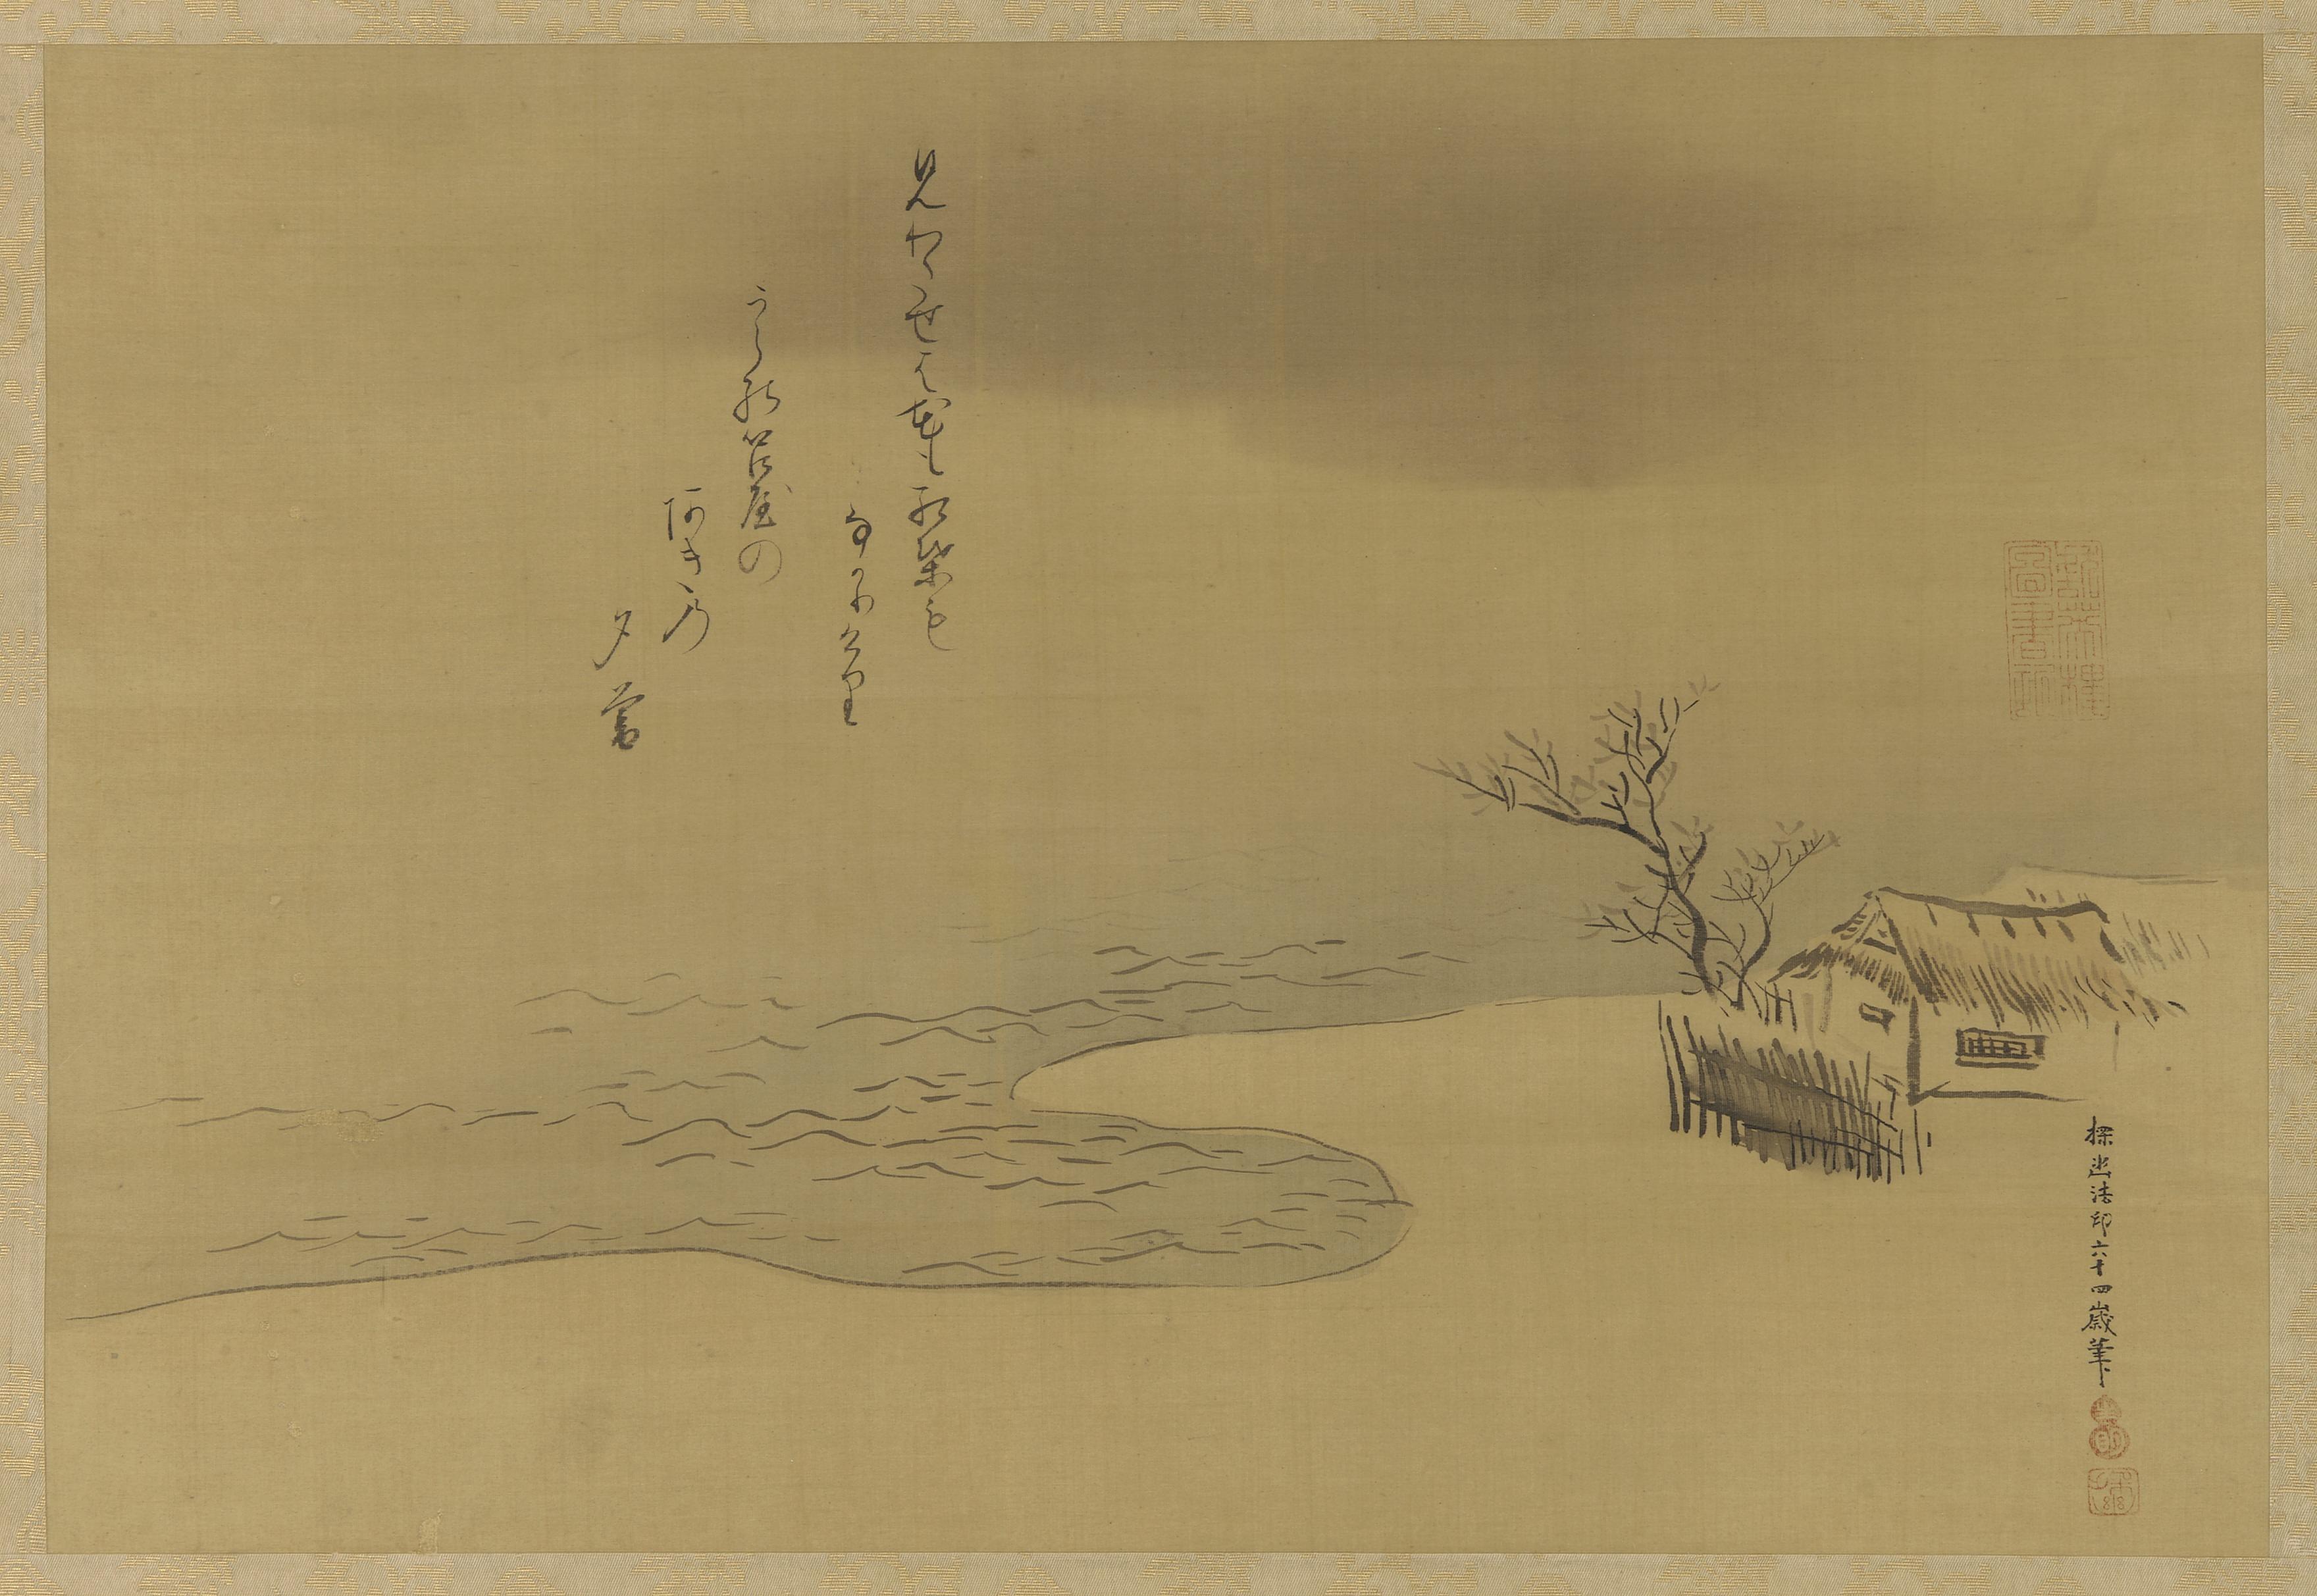 見わたせは花も紅葉も
なかりけり
うらの苫屋の
阿きの
夕暮
探幽法印六十四歳筆